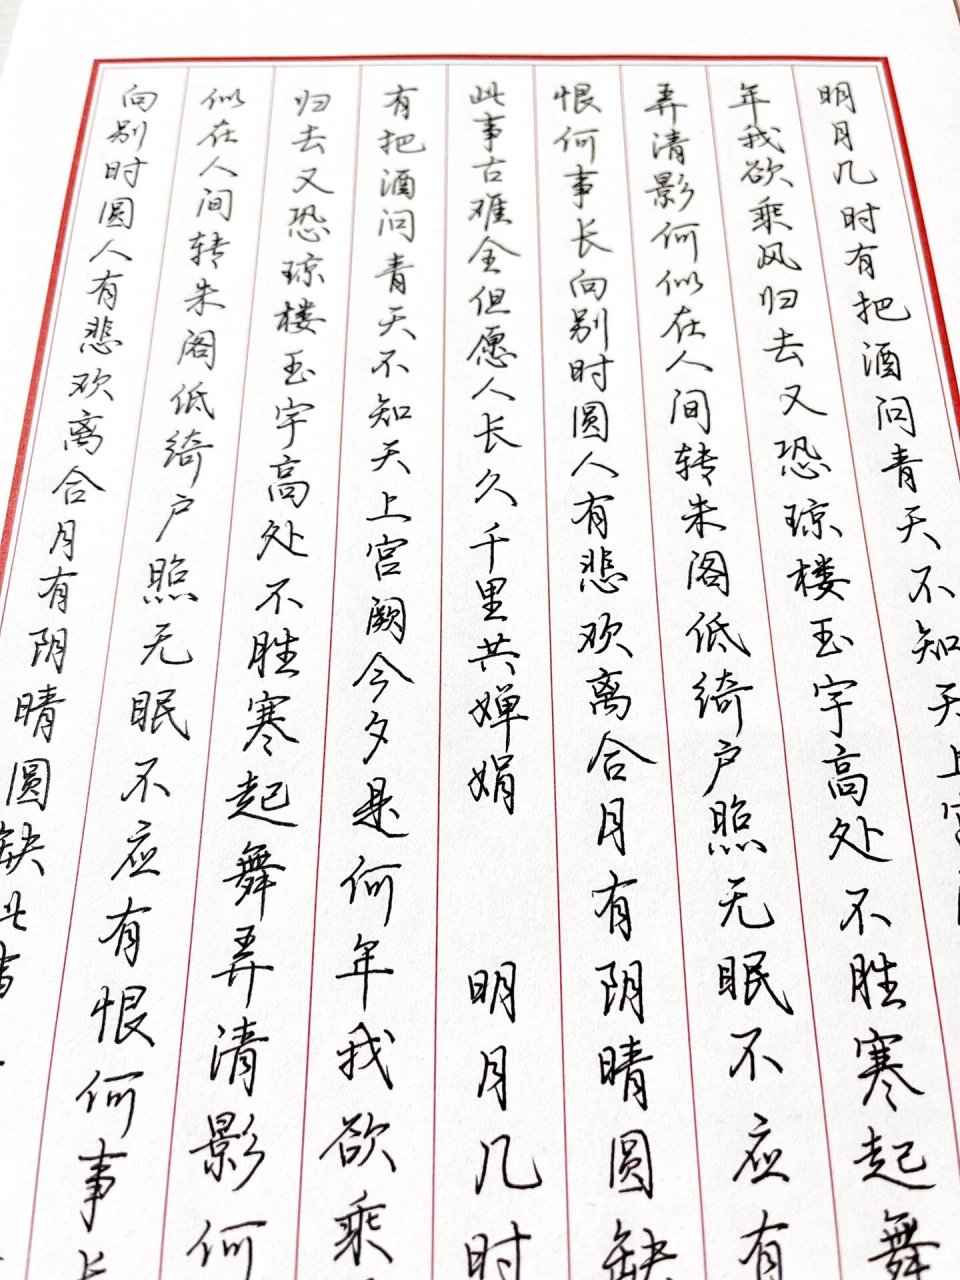 明月几时有把酒问青天不知天上宫
年我欲乘风归去又恐琼楼玉宇高处不胜寒起舞
弄清影何似在人间转朱阁低绮户照无眠不应有
恨何事长向别时圆人有悲欢离合月有阴晴圆缺
此事古难全但愿人长久千里共婵娟 明月几时
有把酒问青天不知天上宫阙今夕是何年我欲乘
归去又恐琼楼玉宇高处不胜寒起舞弄清影何
似在人间转朱阁低绮户照无眠不应有恨何事长
向别时圆人有悲欢离合月有阴晴圆缺此事